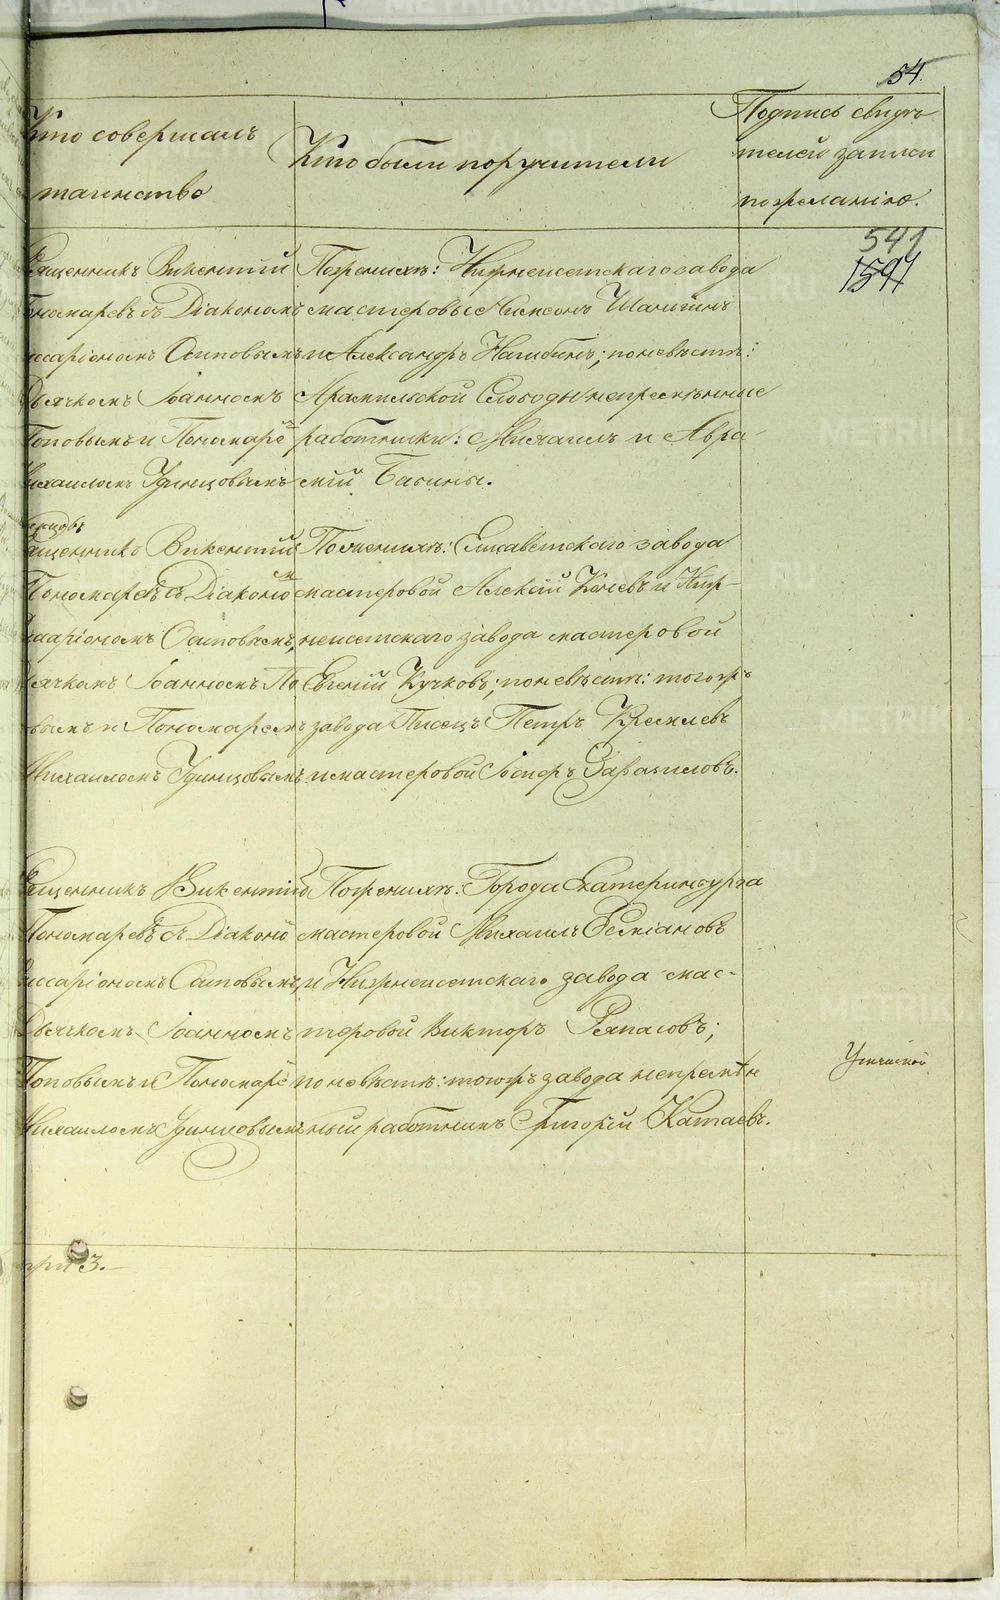 54.
Кто совершалъ
таинство
Кто были поручители
Подпись свидѣ
телей записи
по желанію.
541
1597
Священникъ Викентий
Пономаревъ съ Діакономъ
ссаріономъ Осиповымъ
Дьячкомъ Іоанномъ
Поповымъ и Пономарё
Михаиломъ Удинцовымъ
По женихѣ: Нижнеисетскаго завода
мастеровые Симеонъ Шаньгинъ
и Александръ Нагибинъ; по невѣстѣ:
Арамильской Слободы непремѣнные
работники: Михаилъ и Авра-
мій Басины.
Священникъ Викентий
Пономаревъ съ Діакономъ
ссаріономъ Осиповымъ,
Дьячкомъ Іоанномъ По
вымъ и Пономаремъ
Михаиломъ Удинцовымъ
По женихѣ: Елисаветскаго завода
мастеровой Алексій Коневъ и Ниж-
неисетскаго завода мастеровой
Евгеній Кучковъ; по невѣстѣ: тогожъ
завода Писецъ Петръ
и мастеровой
Священникъ Викентій
Пономаревъ съ Діаконо
ссаріономъ Осиповымъ,
Дьячкомъ Іоанномъ
Поповымъ и Пономарё
Михаиломъ Удинцовымъ
По женихѣ: Города Екатеринбурга
мастеровой Михаилъ Демiановъ
и Нижнеисетскаго завода мас-
теровой Викторъ
по невѣстѣ: тогожъ завода непремѣн
ный работникъ Григорій Катаевъ.
при 3.
METRIKI.GASO-URAL.RU